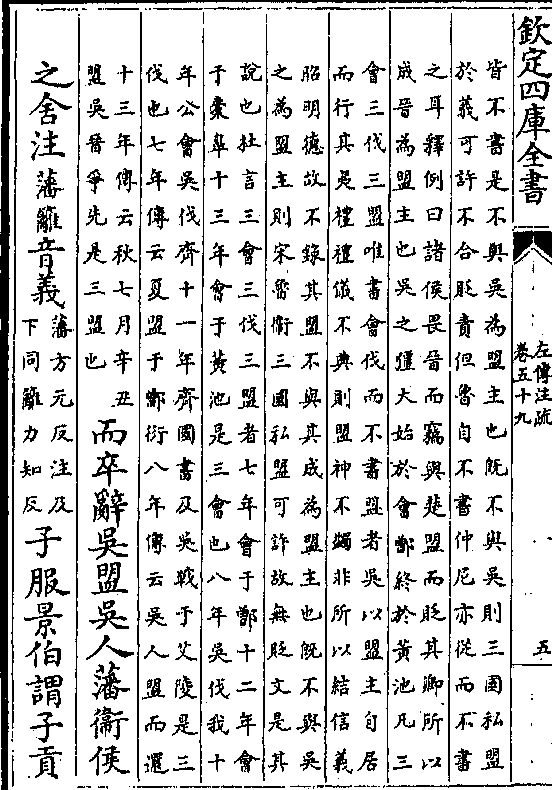 欽定四庫全書
左傳注疏
卷五十九
五
皆不書是不與吳為盟主也既不與吳則三國私盟
於義可許不合貶責但魯自不書仲尼亦從而不書
之耳釋例曰諸侯畏晉而竊與楚盟而貶其卿所以
成晉為盟主也吳之彊大始於會鄫終於黃池凡三
會三伐三盟唯書會伐而不書盟者吳以盟主自居
而行其夷禮禮儀不典則盟神不蠲非所以結信義
昭明德故不錄其盟不與其成為盟主也既不與吳
之為盟主則宋魯衛三國私盟可許故無貶文是其
說也杜言三會三伐三盟者七年會于鄫十二年會
于橐皋十三年會于黃池是三會也八年吳伐我十
年公會吳伐齊十一年齊國書及吳戰于艾陵是三
伐也七年傳云夏盟于鄫衍八年傳云吳人盟而還
十三年傳云秋七月辛丑
盟吳晉爭先是三盟也
而卒辭吳盟吳人藩衛侯
之舍注藩籬音義
藩方元反注及
下同籬力知反
子服景伯謂子貢